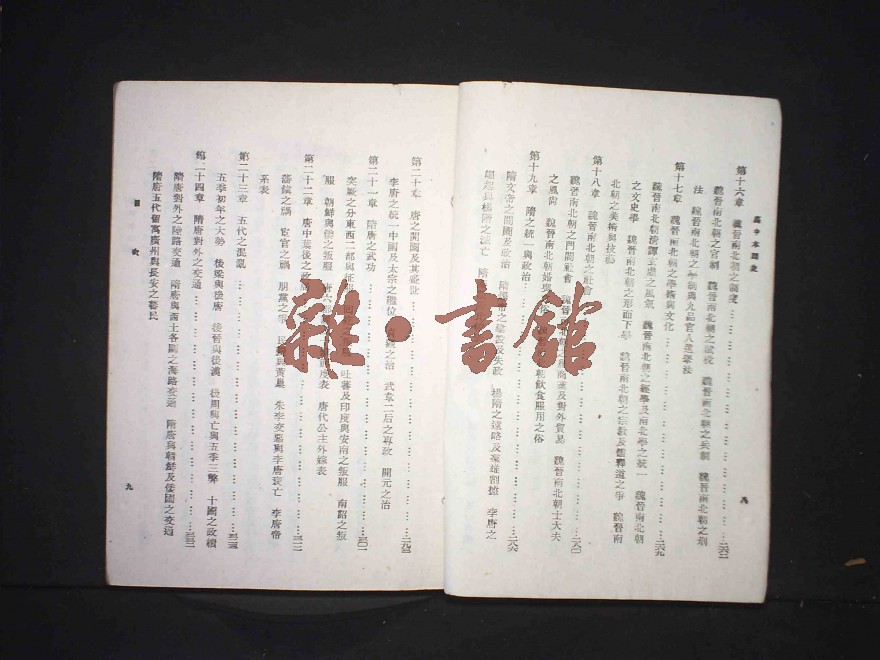 高中本國史
八
第十六章 魏晉南北朝之制度……………二六二
魏晉南北朝之官制 魏晉南北朝之賦稅 魏晉南北朝之兵制 魏晉南北朝之刑
法 魏晉南北朝之學制與九品官人選舉法
第十七章 魏晉南北朝之學術與文化……………二六九
魏晉南北朝清譚玄虛之風氣 魏晉南北朝之經學及南北學之統一 魏晉南北朝
之文史學 魏晉南北朝之形而下學 魏晉南北朝之宗教及儒釋道之爭 魏晉南
北朝之美術與技藝
第十八章 魏晉南北朝之社會……………二八〇
魏晉南北朝之門閥社會 商業及對外貿易 魏晉南北朝士大夫
之風尚 魏晉南北朝婚與 與飲食服用之俗
第十九章 隋之統一與政治……………二八六
隋文帝之開國及政治 隋煬帝之建設及失政 楊隋之遠略及羣雄割據 李唐之
崛起與楊隋之滅亡 隋
第二十章 唐之開國及其盛世……………二九三
李唐之統一中國及太宗之繼位 之治 武韋二后之專政 開元之治
第二十一章 隋唐之武功……………三〇一
突厥之分東西二部與征服 吐蕃及印度與安南之叛服 南詔之叛
服 朝鮮與倭之叛服 唐六都 表 唐代公主外嫁表
第二十二章 唐中葉後之政局……………三一二
藩鎮之禍 宦官之禍 朋黨之爭 民 與黃巢 朱李交惡與李唐衰亡 李唐帝
系表
第二十三章 五代之混亂……………三二三
五季初年之大勢 後梁與後唐 後晉與後漢 後周興亡與五季三弊 十國之政績
第二十四章 隋唐對外之交通……………三三二
隋唐對外之陸路交通 隋唐與西土各國之海路交通 隋唐與朝鮮及倭國之交通
隋唐五代留寓廣州與長安之蕃民
目次
九
雜·書館